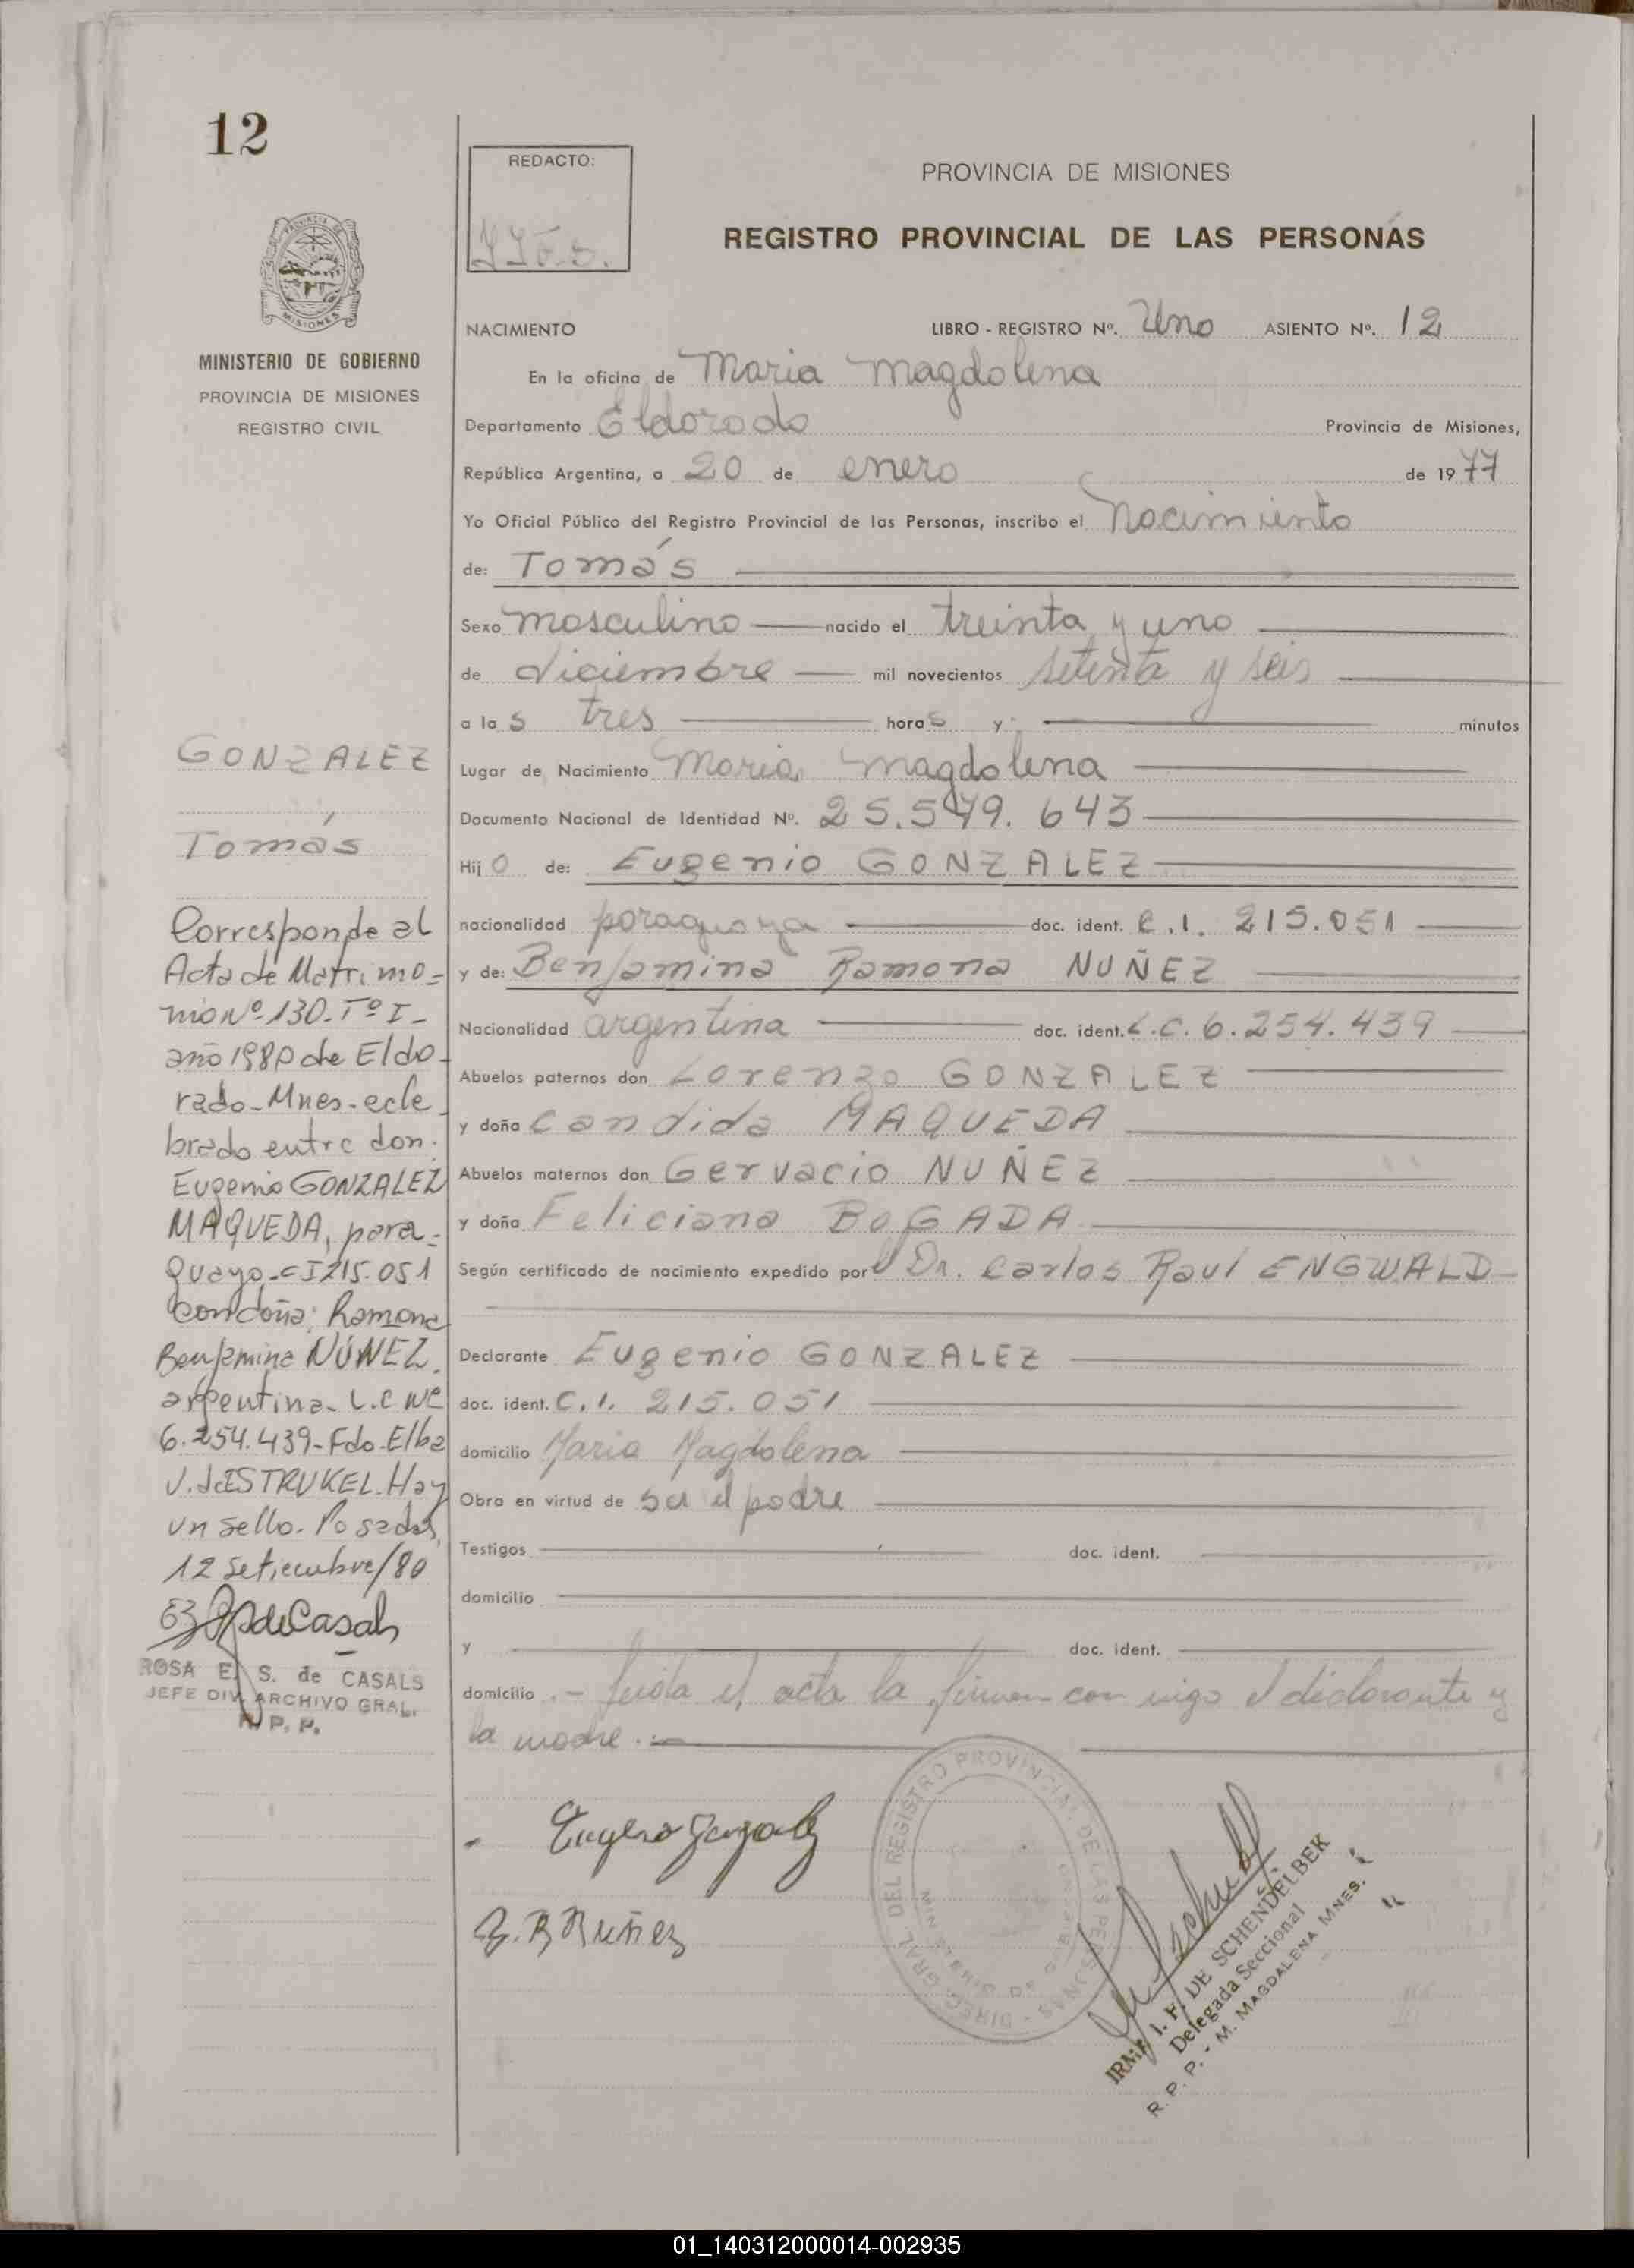 12
MINISTERIO DE GOBIERNO
PROVINCIA DE MISIONES
REGISTRO CIVIL
GONZALEZ
Tomás
Corresponde al
Acta de Matrimo=
nio Nº 130. Tº I-
año 1980 de Eldo-
rado-Mnes. cele
brado entre don:
Eugenio GONZALEZ
MAQUEDA, para=
guayo-CI 215.051
con doña: Ramona
Benjamina NÚÑEZ.
argentina. L.C Nº
6.254.439-Fdo-Elba
V. de ESTRUKEL. Hay
un sello. Posadas,
12 setiembre/80
ROSA E. S. de CASALS
JEFE DIV. ARCHIVO GRAL.
R. P. P.
REDACTO:
PROVINCIA DE MISIONES
REGISTRO PROVINCIAL DE LAS PERSONAS
NACIMIENTO LIBRO - REGISTRO Nº. Uno ASIENTO Nº. 12
En la oficina de Maria Magdalena
Departamento Eldorado Provincia de Misiones,
República Argentina, a 20 de enero de 1977
Yo Oficial Público del Registro Provincial de las Personas, inscribo el Nacimiento
de: Tomás
Sexo masculino nacido el treinta y uno
de diciembre mil novecientos setenta y seis
a las tres horas y minutos
Lugar de Nacimiento Maria Magdalena
Documento Nacional de Identidad Nº. 25.579.643
Hijo de: Eugenio GONZALEZ
nacionalidad paraguaya doc. ident. C.I. 215.051
y de: Benjamina Ramona NUÑEZ
Nacionalidad argentina doc. ident. L.C. 6.254.439
Abuelos paternos don Lorenzo GONZALEZ
y doña Candida MAQUEDA
Abuelos maternos don Gervacio NUÑEZ
y doña Feliciana BOGADA
Según certificado de nacimiento expedido por el Dr. Carlos Raul ENGWALD
Declarante Eugenio GONZALEZ
doc. ident. C.I. 215.051
domicilio Maria Magdalena
Obra en virtud de ser el padre
Testigos doc. ident.
domicilio
y doc. ident.
domicilio .- leida el acta la firman con migo el declarante y
la madre .
Eugenio Gonzalez
B. R Nuñez
DIREC. GRAL. DEL REGISTRO PROVINCIAL DE LAS PERSONAS
IRMA I. F. DE SCHENDELBEK
Delegada Seccional
R. P. P. - M. MAGDALENA MNES.
01_140312000014-002935